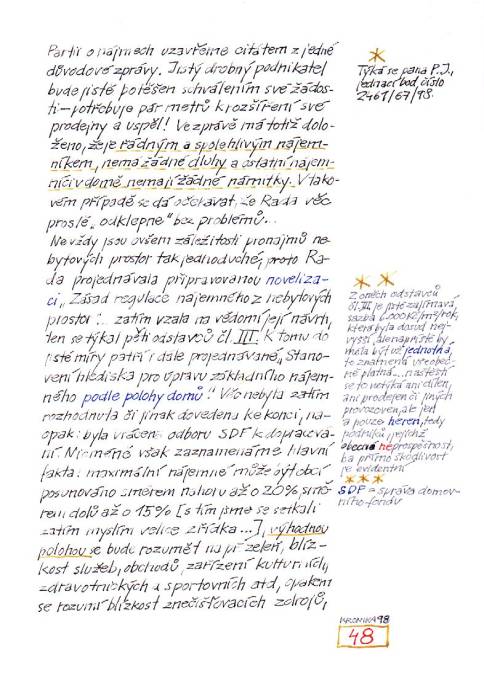 Partii o nájmech uzavřeme citátem z jedné
důvodové zprávy. Jistý drobný podnikatel
bude jistě potěšen schválením své žádos-
ti – potřebuje pár metrů k rozšíření své
prodejny a uspěl! Ve zprávě má totiž dolo-
ženo, že je řádným a spolehlivým nájem-
níkem, nemá žádné dluhy a ostatní nájem-
níci v domě nemají žádné námitky. V tako-
vém případě se dá očekávat, že Rada věc
prostě „odklepne“ bez problémů...
Ne vždy jsou ovšem záležitosti pronájmů ne-
bytových prostor tak jednoduché, proto Ra-
da projednávala připravovanou noveliza-
ci „Zásad regulace nájemného z nebytových
prostor“... zatím vzala na vědomí její návrh,
ten se týkal pěti odstavců čl. III. K tomu do
jisté míry patří i dále projednávané „Stano-
vení hlediska pro úpravu základního nájem-
ného podle polohy domů“. Věc nebyla zatím
rozhodnuta či jinak dovedena ke konci, na-
opak: byla vrácena odboru SDF k dopracová-
ní. Nicméně však zaznamenáme hlavní
fakta: maximální nájemné může být oboj
posunováno směrem nahoru až o 20%, smě-
rem dolů až o 15% [s tím jsme se setkali
zatím myslím velice zřídka...], výhodnou
polohou se bude rozumět např. zeleň, blíz-
kost služeb, obchodů, zařízení kulturních,
zdravotnických a sportovních atd, opakem
se rozumí blízkost znečišťovacích zdrojů,
*
Týká se pana P. J.,
jednací bod číslo
2461/67/98.
* *
Z oněch odstavců
čl. III. je jistě zajímavá
sazba 6.000 Kč/m²/rok,
která byla dosud nej-
vyšší, ale napříště by
měla být už jednotná,
to znamená všeobec-
ně platná... naštěstí
se to netýká ani dílen,
ani prodejen či jiných
provozoven, ale jen
a pouze heren, tedy
podniků, jejichž
obecná neprospěšnost,
ba přímo škodlivost
je evidentní
* * *
SDF = správa domov-
ního fondu
KRONIKA 98
48